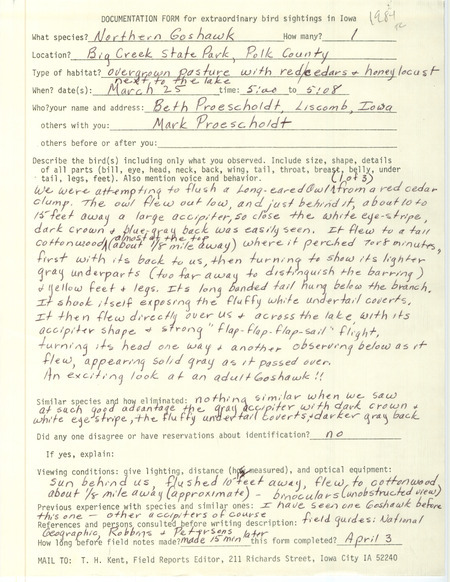 DOCUMENTATION FORM for extraordinary bird sightings in Iowa 1984
What species? Northern Goshawk How many? 1
Location? Big Creek State Park, Polk County
Type of habitat? overgrown pasture with red cedars + honey locust
next to the lake
When? date(s): March 25 time: 5:00 to 5:08
Who? your name and address: Beth Proescholdt, Liscomb, Iowa
others with you: Mark Proescholdt
others before or after you:
Describe the bird(s) including only what you observed. Include size, shape, details
of all parts (bill, eye, head, neck, back, wing, tail, throat, breast, belly, under
tail, legs, feet). Also mention voice and behavior. (1 of 3)
We were attempting to flush a Long-eared Owl from a red cedar
clump. The owl flew out low, and just behind it, about 10 to
15 feet away a large accipiter, so close the white eye-stripe,
dark crown + blue-gray back was easily seen. It flew to a tall
almost at the top
cottonwood (about 1/8 mile away) where it perched 7 or 8 minutes,
first with its back to us, then turning to show its lighter
gray underparts (too far away to distinguish the barring)
+ yellow feet + legs. Its long banded tail hung below the branch.
It shook itself exposing the fluffy white undertail coverts.
It then flew directly over us + across the lake with its
accipiter shape + strong "flap-flap-flap-sail" flight,
turning its head one way + another observing below as it
flew, appearing solid gray as it passed over.
An exciting look at an adult Goshawk!!
Similar species and how eliminated: nothing similar when we saw
at such good advantage the gray accipiter with dark crown +
white eye-stripe, the fluffy undertail coverts, + darker gray back
Did any one disagree or have reservations about identification? no
If yes, explain:
Viewing conditions: give lighting, distance (how measured), and optical equipment:
Sun behind us, flushed 10 feet away, flew to cottonwood
about 1/8 mile away (approximate) - binoculars (unobstructed view)
Previous experience with species and similar ones: I have seen one Goshawk before
this one - other accipiters of course
References and persons consulted before writing description: field guides: National
Geographic, Robbins + Petersons
How long before field notes made? made 15 min later this form completed? April 3
MAIL TO: T. H. Kent, Field Reports Editor, 211 Richards Street, Iowa City IA 52240